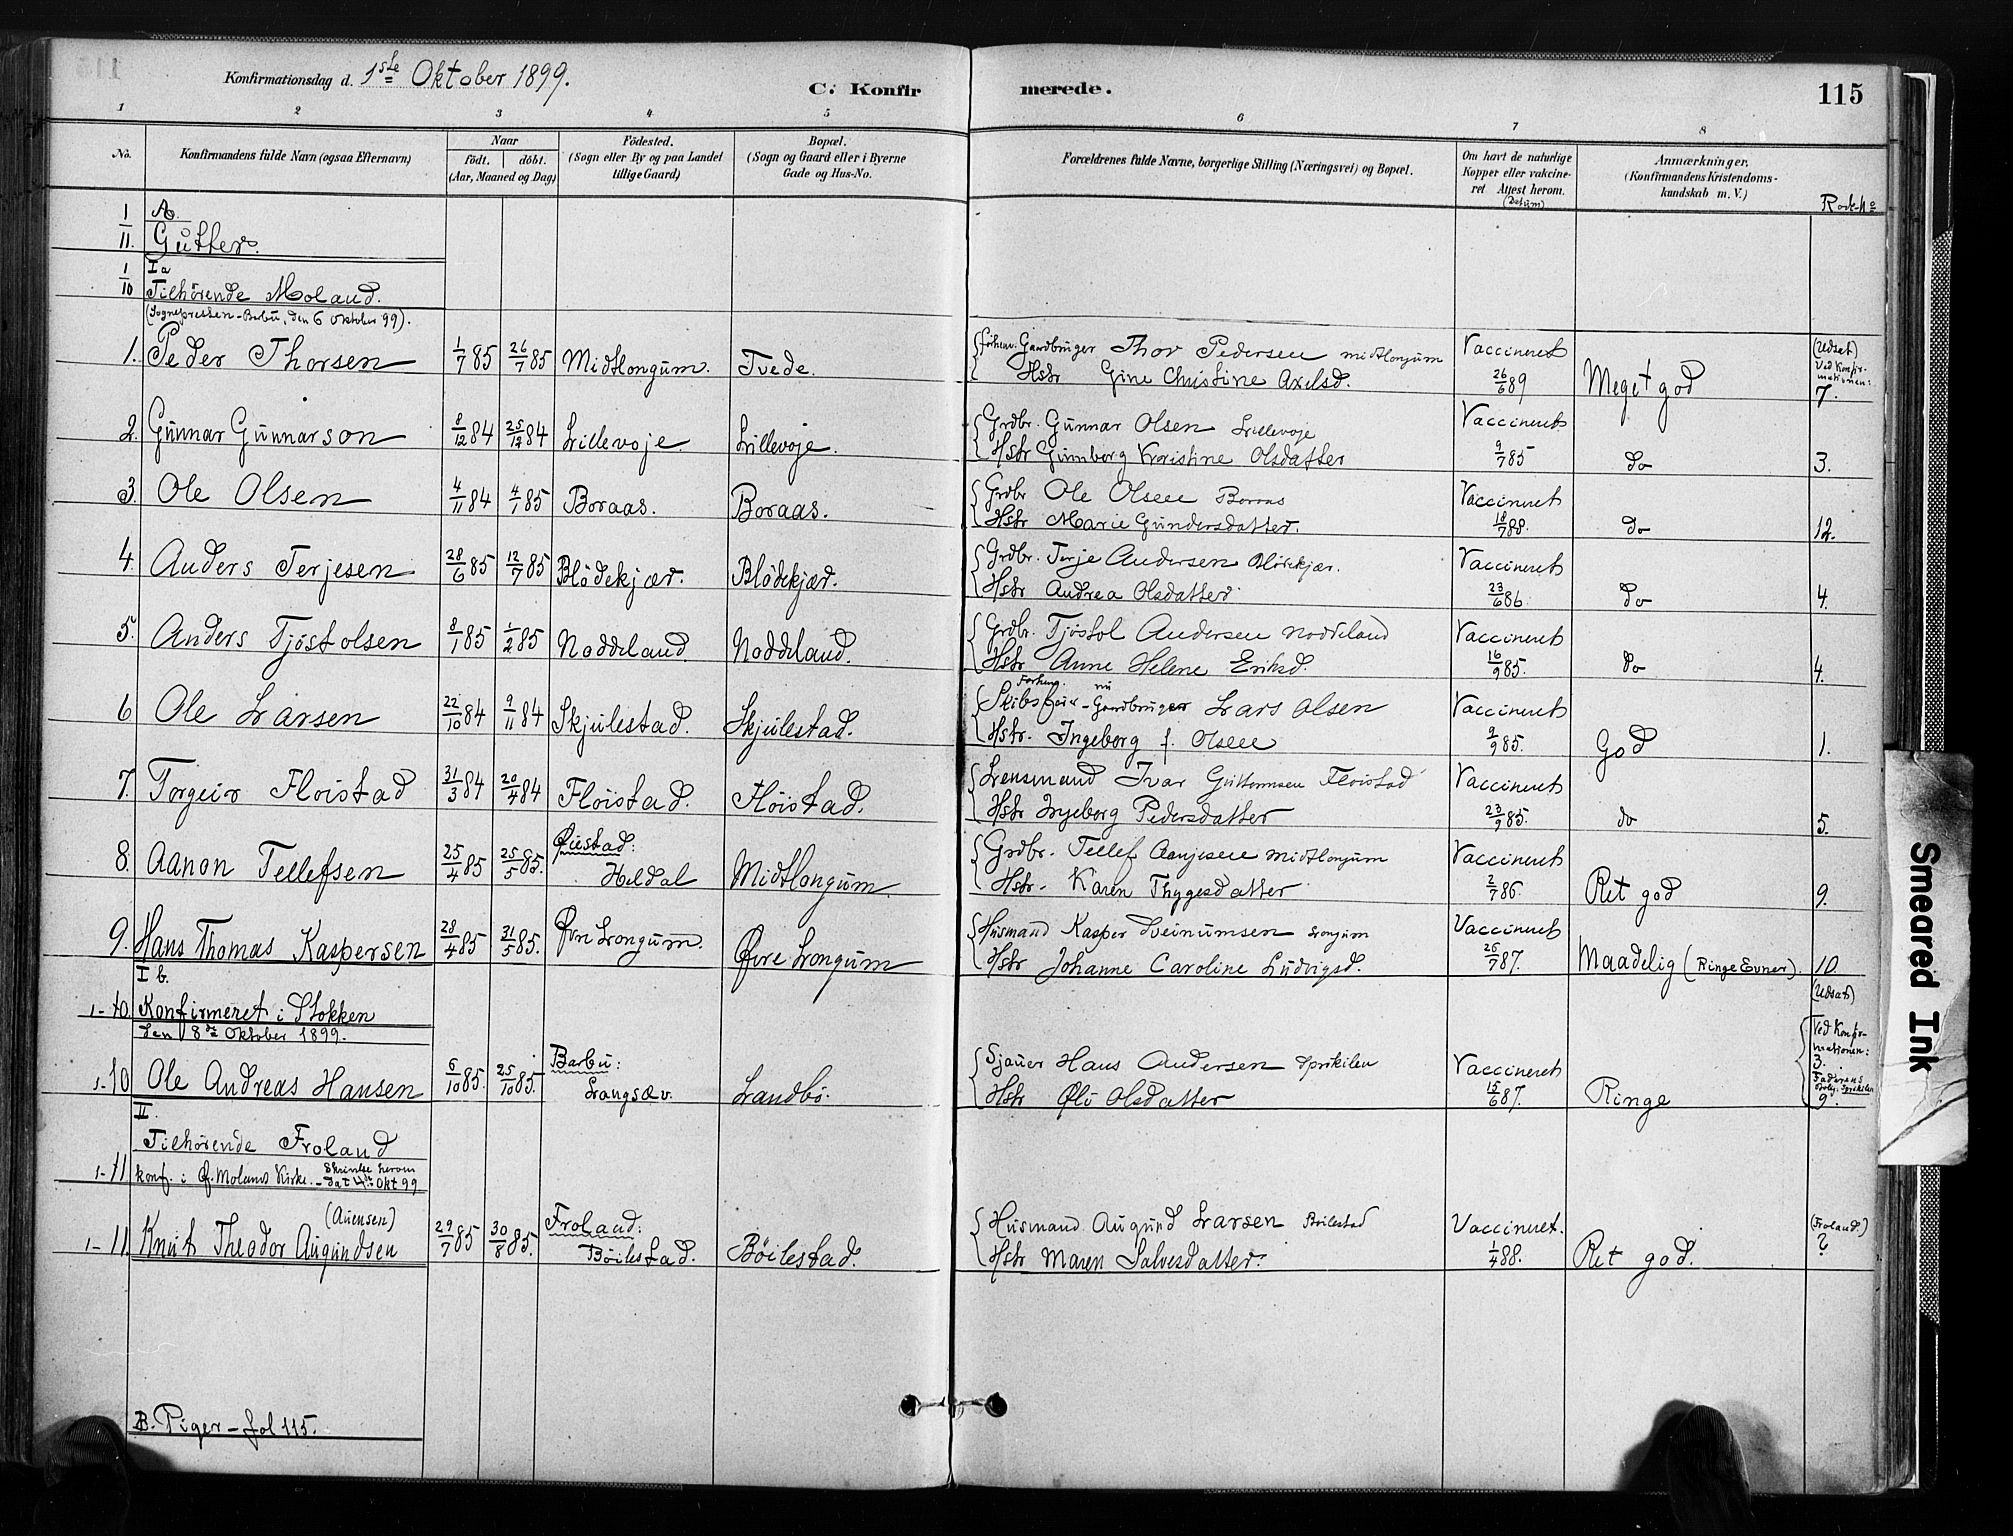 Konfirmationsdag d. 1ste Oktober 1899.
C. Konfirmerede.
115
1 2 3 4 5 6 7 8
No.
Konfirmandens fulde Navn (ogsaa Efternavn)
Naar
født. døbt.
(Aar, Maaned og Dag)
Fødested.
(Sogn eller By og paa Landet
tillige Gaard)
Bopæl.
(Sogn og Gaard eller i Byerne
Gade og Hus-No.
Forældrenes fulde Navne, borgerlige Stilling (Næringsvei) og Bopæl.
Om havt de naturlige
Kopper eller vakcine-
ret Attest herom.
(Datum)
Anmærkninger.
(Konfirmandens Kristendoms-
kundskab m. V.)
Rode-No
1/11. A.
Gutter.
1/10 Ia
Tilhørende Moland.
(Sognepresten-Barbu, den 6 Oktober 99).
1. Peder Thorsen 1/7 85 26/7 85 Midtlongum. Tvede. Forhenv. Gaardbruger Thor Pedersen Midtlongum Vaccineret (Udsat)
Hstr Gine Christine Axelsd. 26/6 89 Meget god Ved Konfir-
mationen:
7.
2. Gunnar Gunnarson 8/12 84 25/12 84 Lillevoje Lillevoje. Grdbr. Gunnar Olsen Lillevoje Vaccineret
Hstr Gunborg Kristine Olsdatter 9/7 85 do 3.
3. Ole Olsen 4/11 84 4/7 85 Boraas. Boraas. Grdbr Ole Olsen Boraas Vaccineret
Hstr Marie Gundersdatter. 18/7 88. do 12.
4. Anders Terjesen 28/6 85 12/7 85 Blødekjær. Blødekjær. Grdbr. Terje Andersen Blødekjær. Vaccineret
Hstr Andrea Olsdatter 23/6 86 do 4.
5. Anders Tjøstolsen 8/1 85 1/2 85 Noddeland Noddeland. Grdbr. Tjøstol Andersen Noddeland Vaccineret
Hstr Anne Helene Eriksd. 16/9 85. do 4.
6 Ole Larsen 22/10 84 9/11 84 Skjulestad. Skjulestad. Forhenv. nu Gaardbruger Lars Olsen Vaccineret
Hstr. Ingeborg f. Olsen 9/9 85. God 1.
7. Torgeir Fløistad 31/3 84 20/4 84 Fløistad. Fløistad. Lensmand Ivar Guttormsen Fløistad Vaccineret
Hstr Ingeborg Pedersdatter 23/9 85. do 5.
8. Aanon Tellefsen 25/4 85 25/5 85. Øiestad:
Heldal Midtlongum Grdbr. Tellef Aanjesen Midtlongum Vaccineret
Hstr. Karen Thygesdatter 2/7 86. Ret god 9.
9. Hans Thomas Kaspersen 28/4 85 31/5 85. Øvre Longum. Øvre Longum Husmand Kasper Sveinumsen Longum Vaccineret
Hstr Johanne Caroline Ludvigsd. 26/7 87. Maadelig (Ringe Evner). 10.
I b.
1-10. Konfirmeret i Stokken
den 8de Oktober 1899.
(Udsat)
Ved Konfir-
mationen:
3.
1-10 Ole Andreas Hansen 6/10 85. 25/10 85. Barbu:
Langsæv. Landbø. Sjauer Hans Andersen Sprøkilen Vaccineret
Hstr Øli Olsdatter 15/6 87. Ringe Faderens
9.
II.
Tilhørende Froland
1-11 konf. i Ø. Molands Kirke. - Skrivelse herom
dat 4de Okt 99
(Auensen)
1-11. Knut Theodor Augundsen 29/7 85 30/8 85. Froland:
Bøilestad. Bøilestad. Husmand Augund Larsen Bøilestad Vaccineret. (Froland)
Hstr Maren Salvesdatter. 1/4 88. Ret god. ?
B. Piger - fol 115.
Smeared Ink